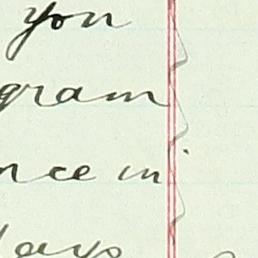 you
gram
nce in
days